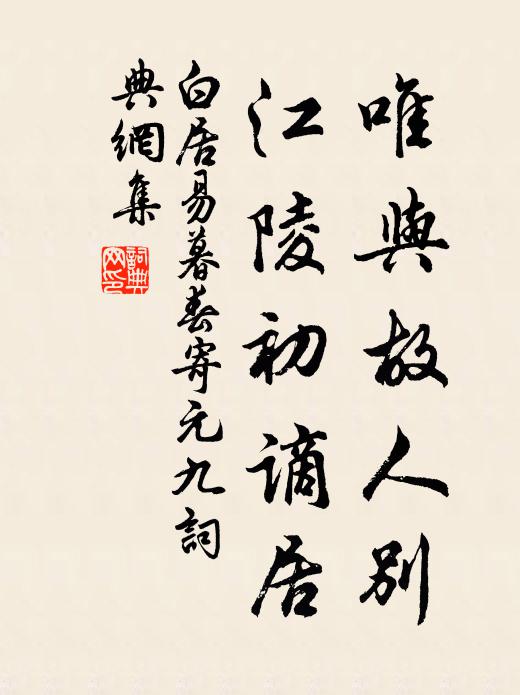 唯與故人別
江陵初謫居
白居易暮春寄元九詞
典網集
詞典
网印